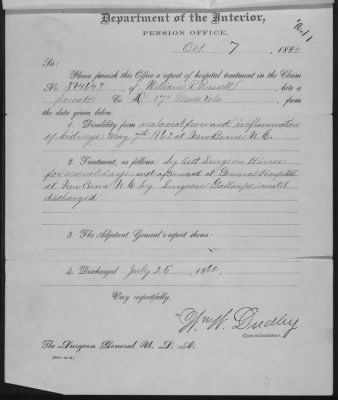 No. 1
Department of the Interior,
PENSION OFFICE,
Oct 7, 1882
Sir:
Please furnish this Office a report of hospital treatment in the Claim
No. 394643, of William F. Russell, late a
private Co. 17" Mass Vols, from
the date given below.
1. Disability from malarial fever and inflammation
of kidneys May 7th 1862 at New Berne N.C.
2. Treatment, as follows: by Asst Surgeon
for several days and afterward at General Hospital
at New Bern N.C. by Surgeon Galloupe until
discharged
3. The Adjutant General's report shows:
4. Discharged July 25 1862.
Very respectfully,
Wm W. Dudley
Commissioner.
The Surgeon General U. S. A.